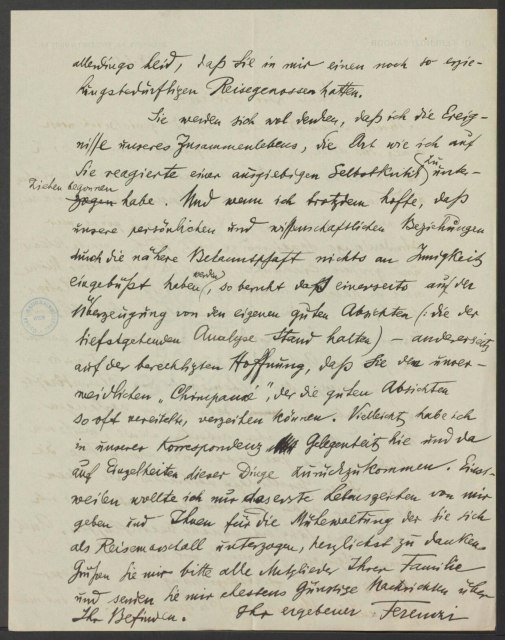 allerdings leid, daß Sie in mir einen noch so erzie-
hungsbedürftigen Reisegenossen hatten.
Sie werden sich wol denken, daß ich die Ereig-
nisse unseres Zusammenlebens, die Art wie ich auf
Sie reagierte einer ausgiebigen Selbstkritik zu unter-
ziehen begonnen
zogen habe. Und wenn ich trotzdem hoffe, daß
unsere persönlichen und wissenschaftlichen Beziehungen
durch die nähere Bekanntschaft nichts an Innigkeit
eingebüßt haben werden, so beruht das einerseits auf der
Überzeugung von den eigenen guten Absichten (: die der
tiefstgehenden Analyse Stand halten) – andererseits
auf der berechtigten Hoffnung, daß Sie den unver-
meidlichen „ ", der die guten Absichten
so oft vereiteln, verzeihen können. Vielleicht habe ich
in unserer Korrespondenz Gelegenheit hie und da
auf Einzelheiten dieser Dinge zurückzukommen. Einst-
weilen wollte ich nur das erste Lebenszeichen von mir
geben und Ihnen für die Mühewaltung der Sie sich
als Reisemarschall unterzogen, herzlichst zu danken.
Grüßen Sie mir bitte alle Mitglieder Ihrer Familie
und senden Sie mir ehestens günstige Nachrichten über
Ihr Befinden. Ihr ergebener Ferenczi